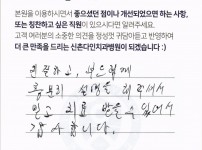 본원을 이용하시면서 좋으셨던 점이나 개선되었으면 하는 사항,
또는 칭찬하고 싶은 직원이 있으시다면 알려주세요.
고객 여러분의 소중한 의견을 정성껏 귀담아듣고 반영하여
더 큰 만족을 드리는 신촌다인치과병원이 되겠습니다 :)
친절하고, 부드럽게
충분히 설명을 해주셔서
믿고 치료 받을 수 있어서
감사합니다.